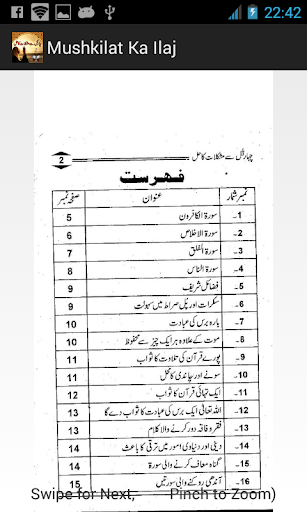 22:42
Mushkilat Ka Ilaj
2 چہار قل سے مشکلات کا حل
فہرست
نمبر شمار عنوان صفحہ نمبر
1- سورۃ الکافرون 5
2- سورۃ الاخلاص 6
3- سورۃ الفلق 7
4- سورۃ الناس 8
5- فضائل شریف 9
6- سکرات اور پل صراط میں سہولت 9
7- بارہ برس کی عبادت 10
8- موت کے علاوہ ہر ایک چیز سے محفوظ 10
9- پورے قرآن کی تلاوت کا ثواب 11
10- سونے اور چاندی کا محل 11
11- ایک تہائی قرآن کا ثواب 12
12- اللہ تعالیٰ ایک برس کی عبادت کا ثواب دے گا 13
13- فقر و فاقہ دور کرنے والا کلام 13
14- دینی اور دنیاوی امور میں ترقی کا باعث 14
15- گناہ معاف کرنے والی سورۃ 14
16- آندھی روکنے والی سورتیں 15
Swipe for Next, Pinch to Zoom)